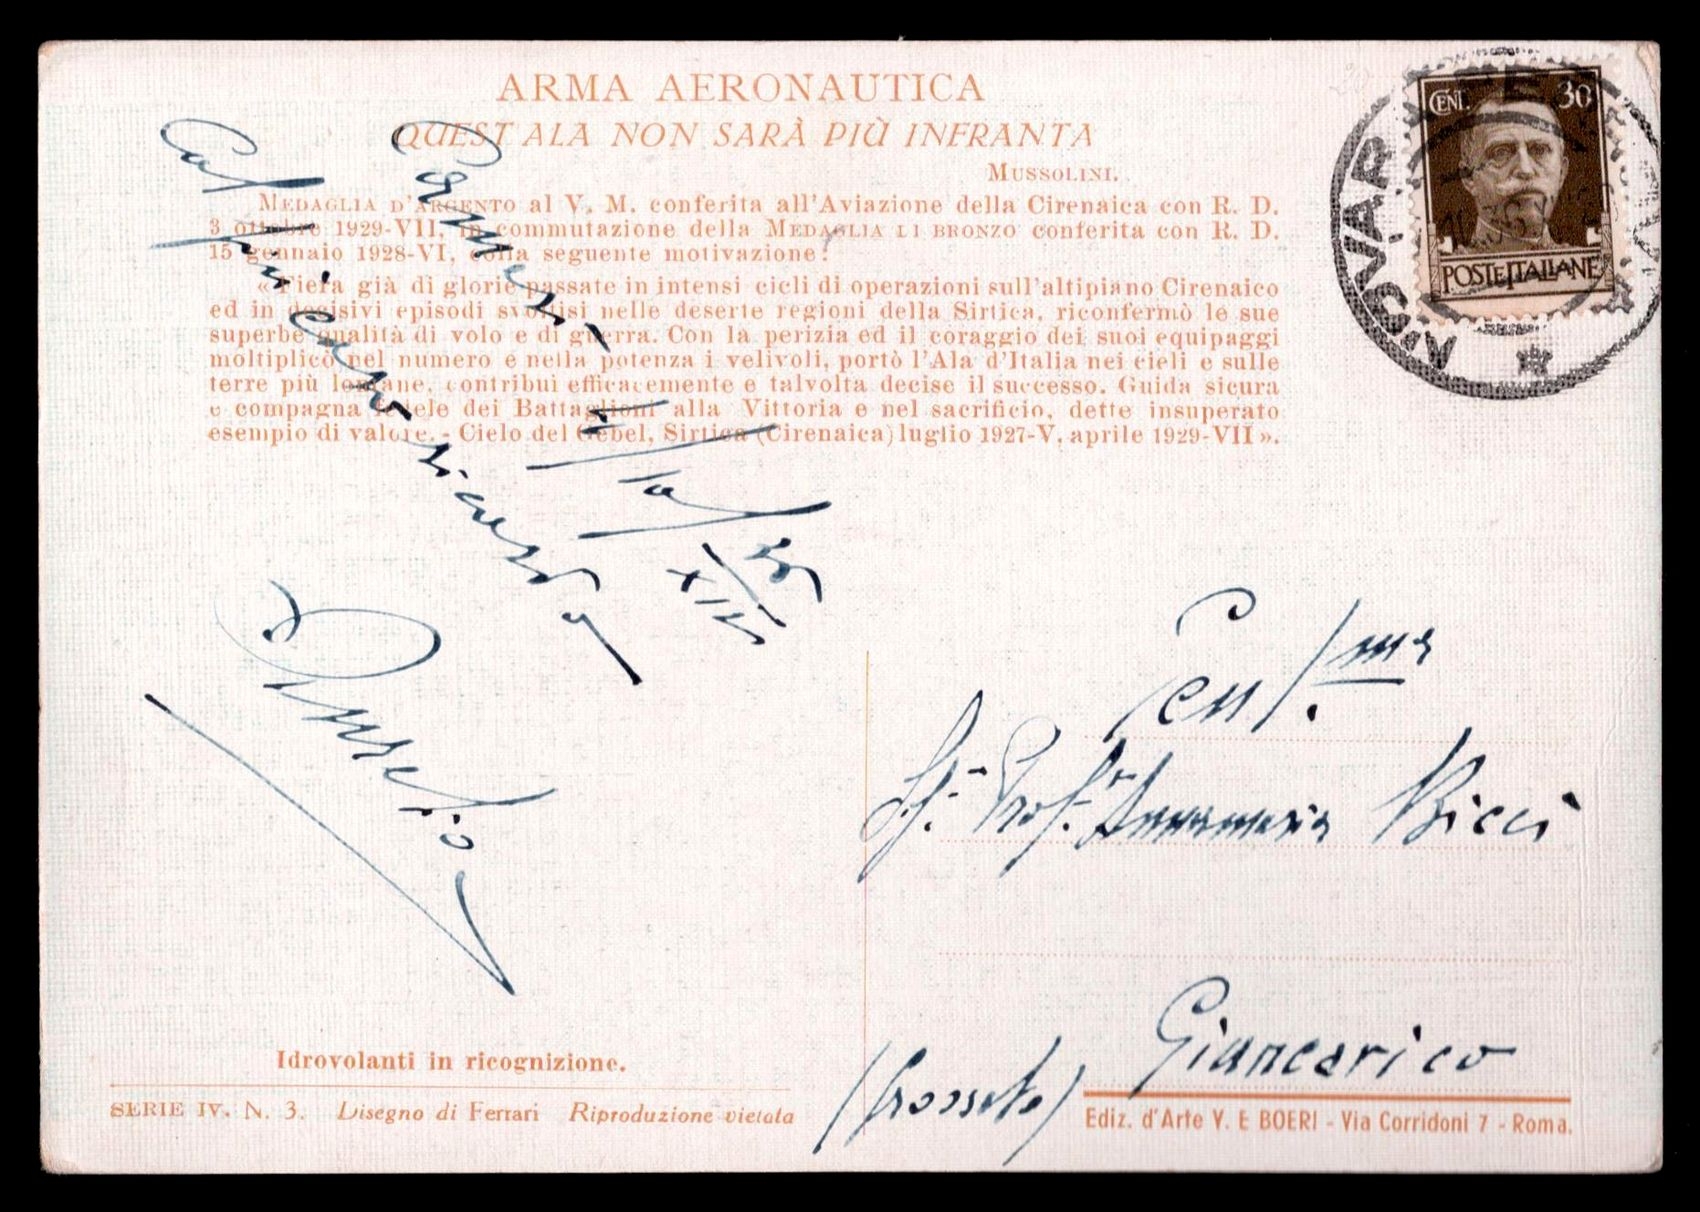 ARMA AERONAUTICA
QUEST ALA NON SARÀ PIÙ INFRANTA
MUSSOLINI.
MEDAGLIA D'ARGENTO al V. M. conferita all'Aviazione della Cirenaica con R. D.
3 ottobre 1929-VII, in commutazione della MEDAGLIA LI BRONZO conferita con R. D.
15 gennaio 1928-VI, colla seguente motivazione:
« Fiera già di glorie passate in intensi cicli di operazioni sull'altipiano Cirenaico
ed in decisivi episodi svoltisi nelle deserte regioni della Sirtica, riconfermò le sue
superbe qualità di volo e di guerra. Con la perizia ed il coraggio dei suoi equipaggi
moltiplicò nel numero e nella potenza i velivoli, portò l'Ala d'Italia nei cieli e sulle
terre più lontane, contribuì efficacemente e talvolta decise il successo. Guida sicura
e compagna fedele dei Battaglioni alla Vittoria e nel sacrificio, dette insuperato
esempio di valore. - Cielo del Gebel, Sirtica (Cirenaica) luglio 1927-V, aprile 1929-VII ».
CENT. 30
POSTE ITALIANE
Col più caro ricordo
XIV
Gent.ma
Prof. Annamaria Ricci
Giancarico
(Grosseto)
Idrovolanti in ricognizione.
SERIE IV. N. 3. Disegno di Ferrari Riproduzione vietata
Ediz. d'Arte V. E BOERI - Via Corridoni 7 - Roma.